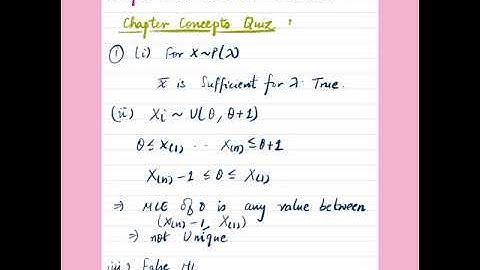 Chapter Concepts Quiz :
① (i) For X~P(λ)
X̄ is Sufficient for λ. True.
(ii) Xi ~ U(θ, θ+1)
θ ≤ X(1) .. X(n) ≤ θ+1
X(n) - 1 ≤ θ ≤ X(1)
⇒ MLE of θ is any value between
(X(n) - 1, X(1))
⇒ not Unique
iii) False